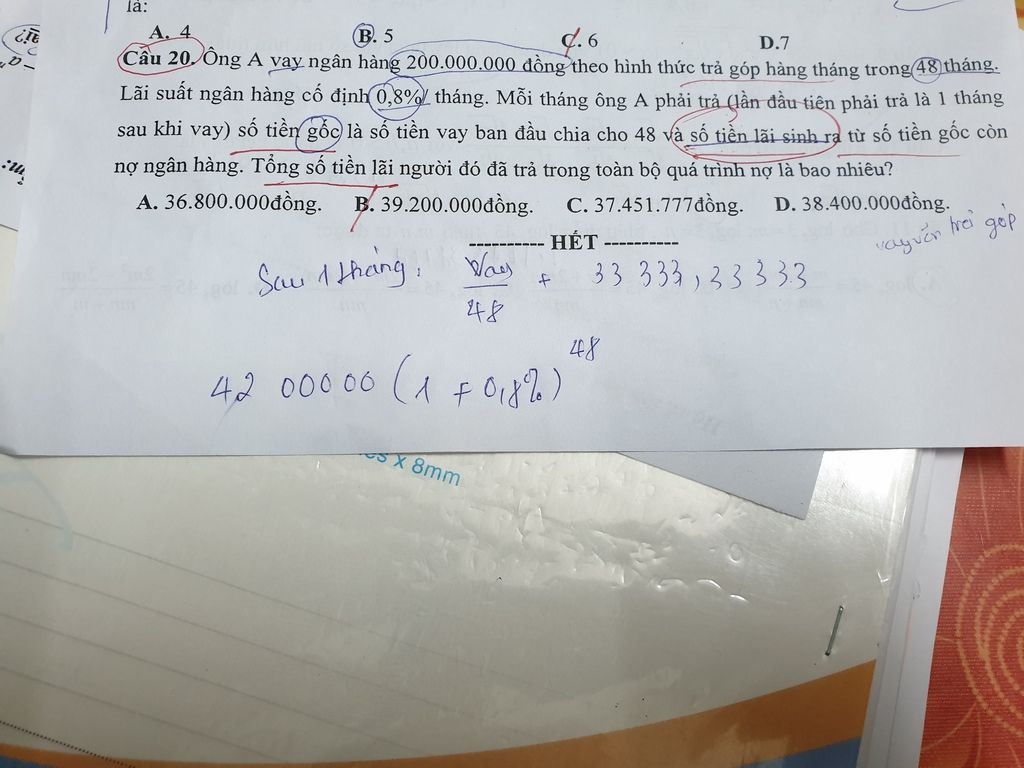 là:
A. 4 B. 5 C. 6 D.7
Câu 20. Ông A vay ngân hàng 200.000.000 đồng theo hình thức trả góp hàng tháng trong 48 tháng.
Lãi suất ngân hàng cố định 0,8%/ tháng. Mỗi tháng ông A phải trả (lần đầu tiên phải trả là 1 tháng
sau khi vay) số tiền gốc là số tiền vay ban đầu chia cho 48 và số tiền lãi sinh ra từ số tiền gốc còn
nợ ngân hàng. Tổng số tiền lãi người đó đã trả trong toàn bộ quá trình nợ là bao nhiêu?
A. 36.800.000đồng. B. 39.200.000đồng. C. 37.451.777đồng. D. 38.400.000đồng.
---------- HẾT ----------
vay vốn trả góp
Sau 1 tháng: Vay/48 + 33 333,33333
42 00000 (1 + 0,8%)^48
x 8mm